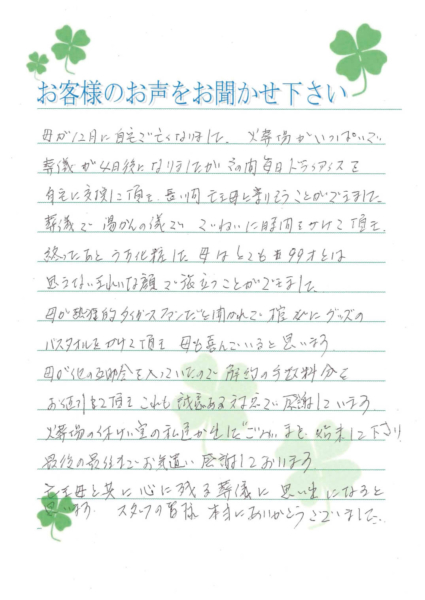 お客様のお声をお聞かせ下さい
母が12月に自宅で亡くなりました。火葬場がいっぱいで
葬儀が4日後になりましたがその間毎日ドライアイスを
自宅に交換に頂き、長い間亡き母と寄りそうことができました。
葬儀で湯かんの儀でていねいに時間をかけて頂き、
終ったあとうす化粧した母はとても99才とは
思えないきれいな顔で旅立つことができました
母が熱狂的タイガースファンだと聞かれて、棺にグッズの
バスタオルをかけて頂き母も喜んでいると思います
母が他の互助会を入っていたので解約の手数料分を
お値引きを頂きこれも誠意ある対応で感謝しています
火葬場の休けい室の私達が出したごみまで始末して下さり
最後の最後までお気遣い感謝しております
亡き母と共に心に残る葬儀に思い出になると
思います。スタッフの皆様本当にありがとうございました。